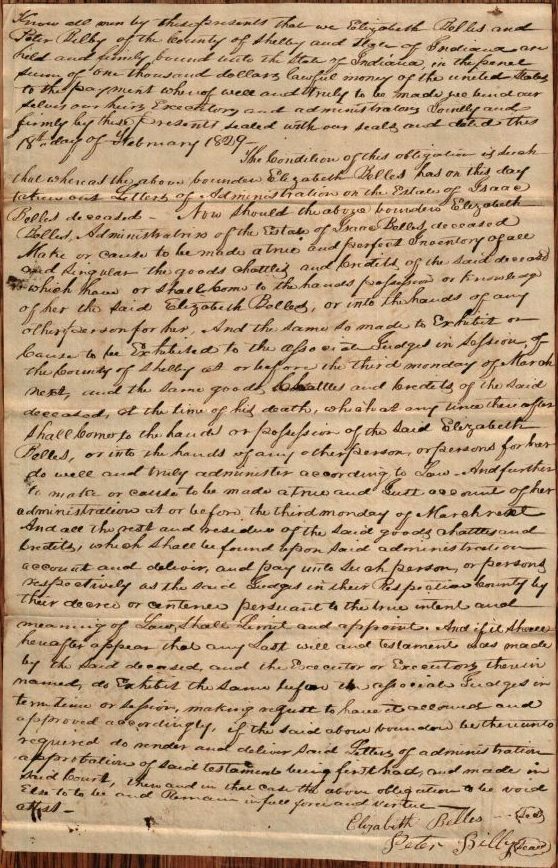 Know all men by these presents that we Elizabeth Bolles and
Peter Bilby of the County of Shelby and State of Indiana are
held and firmly bound unto the State of Indiana, in the penel
sum of one thousand dollars lawful money of the united States
to the payment whereof well and truly to be made we bind our
selves our heirs Executors and administrators Jointly and
firmly by these presents sealed with our seals and dated this
18th day of February 1829—
The Condition of this obligation is such
that whereas the above bounden Elizabeth Bolles has on this day
taken out Letters of Administration on the Estate of Isaac
Bolles deceased — Now should the above bounden Elizabeth
Bolles, Administratrix of the Estate of Isaac Bolles, deceased
Make or cause to be made a true and perfect Inventory of all
and singular the goods chattles and credits of the said deceased
which have or shall come to the hands possession or knowledge
of her the said Elizabeth Bolles, or into the hands of any
other person for her, And the same so made to Exhibit or
Cause to be Exhibited to the associate Judges in session, of
the County of Shelby at or before the third monday of March
next, and the same goods Chattles and Credits of the said
deceased, at the time of his death, which at any time thereafter
shall Come to the hands or possession of the said Elizabeth
Bolles, or into the hands of any other person, or persons for her
do well and truly administer according to Law— And further
to make or cause to be made a true and Just account of her
administration at or before the third monday of March next
And all the rest and residue of the said goods chattles and
credits, which shall be found upon said administration
account and deliver, and pay unto such person, or persons
respectively as the said Judges in their Respective County by
their decree or centence persuant to the true intent and
meaning of Law, shall Limit and appoint. And if it shall
hereafter appear that any Last will and testament was made
by the said deceased, and the Executor or Executors therein
named, do Exhibit the same before the associate Judges in
term time or session, making request to have it allowed and
approved accordingly, if the said above bounden be thereunto
required do render and deliver said Letters of administration
approbation of said testament being first had, and made in
said Court, then and in that case the above obligation to be void
Else to to be and Remain in full force and virtue
attest—
Elizabeth Billes — Seal
Peter Billby Seal